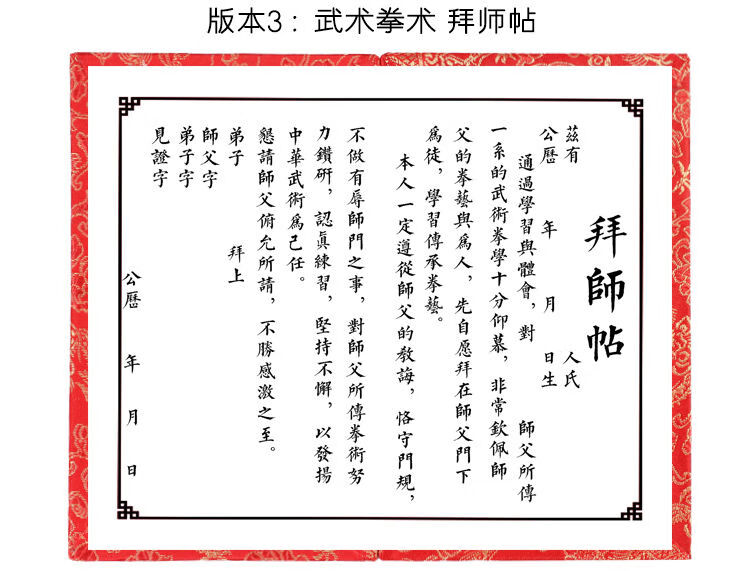 版本3：武术拳术 拜师帖
拜師帖
茲有 人氏
公歷 年 月 日生
通過學習與體會，對 師父所傳
一系的武術拳學十分仰慕，非常欽佩師
父的拳藝與爲人，先自愿拜在師父門下
爲徒，學習傳承拳藝。
本人一定遵從師父的教誨，恪守門規，
不做有辱師門之事，對師父所傳拳術努
力鑽研，認真練習，堅持不懈，以發揚
中華武術爲己任。
懇請師父俯允所請，不勝感激之至。
弟子 拜上
師父字
弟子字
見證字
公歷 年 月 日